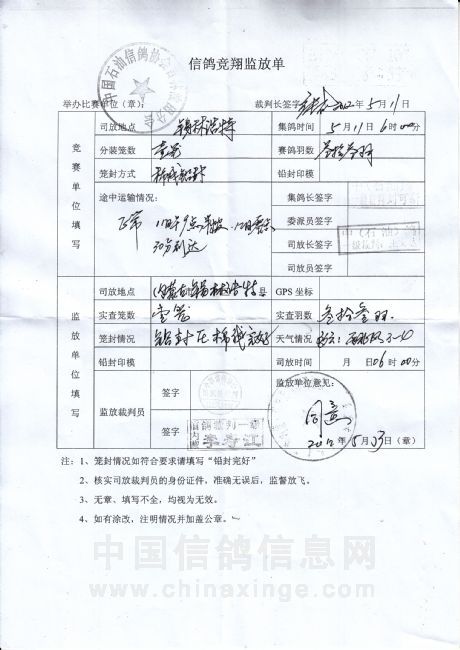 中国石油信鸽协会
信鸽竞翔监放单
举办比赛单位(章): 裁判长签字 2012年5月11日
竞赛单位填写
司放地点 锡林浩特 集鸽时间 5月11日6时00分
分装笼数 壹笼 赛鸽羽数 叁拾叁羽
笼封方式 铅封印模
途中运输情况: 集鸽长签字
正常 委派员签字
30分到达 司放长签字
司放员签字
监放单位填写
司放地点 内蒙古锡林浩特县 GPS 坐标
实查笼数 壹笼 实查羽数 叁拾叁羽
笼封情况 铅封 完好 天气情况
铅封印模 司放时间 月 日06时00分
监放裁判员 签字 监放单位意见:
签字 信鸽裁判一章 李寿江 同意
2012年5月13日(章)
注:1、笼封情况如符合要求请填写“铅封完好”
2、核实司放裁判员的身份证件,准确无误后,监督放飞。
3、无章、填写不全,均视为无效。
4、如有涂改,注明情况并加盖公章。
中国信鸽信息网
www.chinaxinge.com